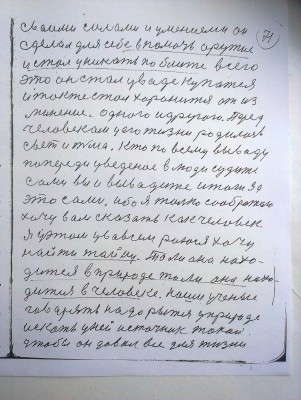 своими силами и умением он 71
сделал для себе в помочь орутие
и стал уникать по бли те всего
это он стал у в аде купатся
и так же стал хоронится от из
минение. одного и другого. Перед
человеком у его жизни родилась
свет и тьма. Кто по всему выводу
попереди уведение в люди судите
сами вы и выводите итоги за
это сами. ибо я только сообразно
хочу вам сказать как человек.
Я у этом у всем радося хочу
найти тайну. То ли она нахо-
дится в природе то ли она нахо-
дится в человеке. Наши ученые
говорять надо рытся у природе
искать у ней источник такой.
чтобы он давал все для жизни